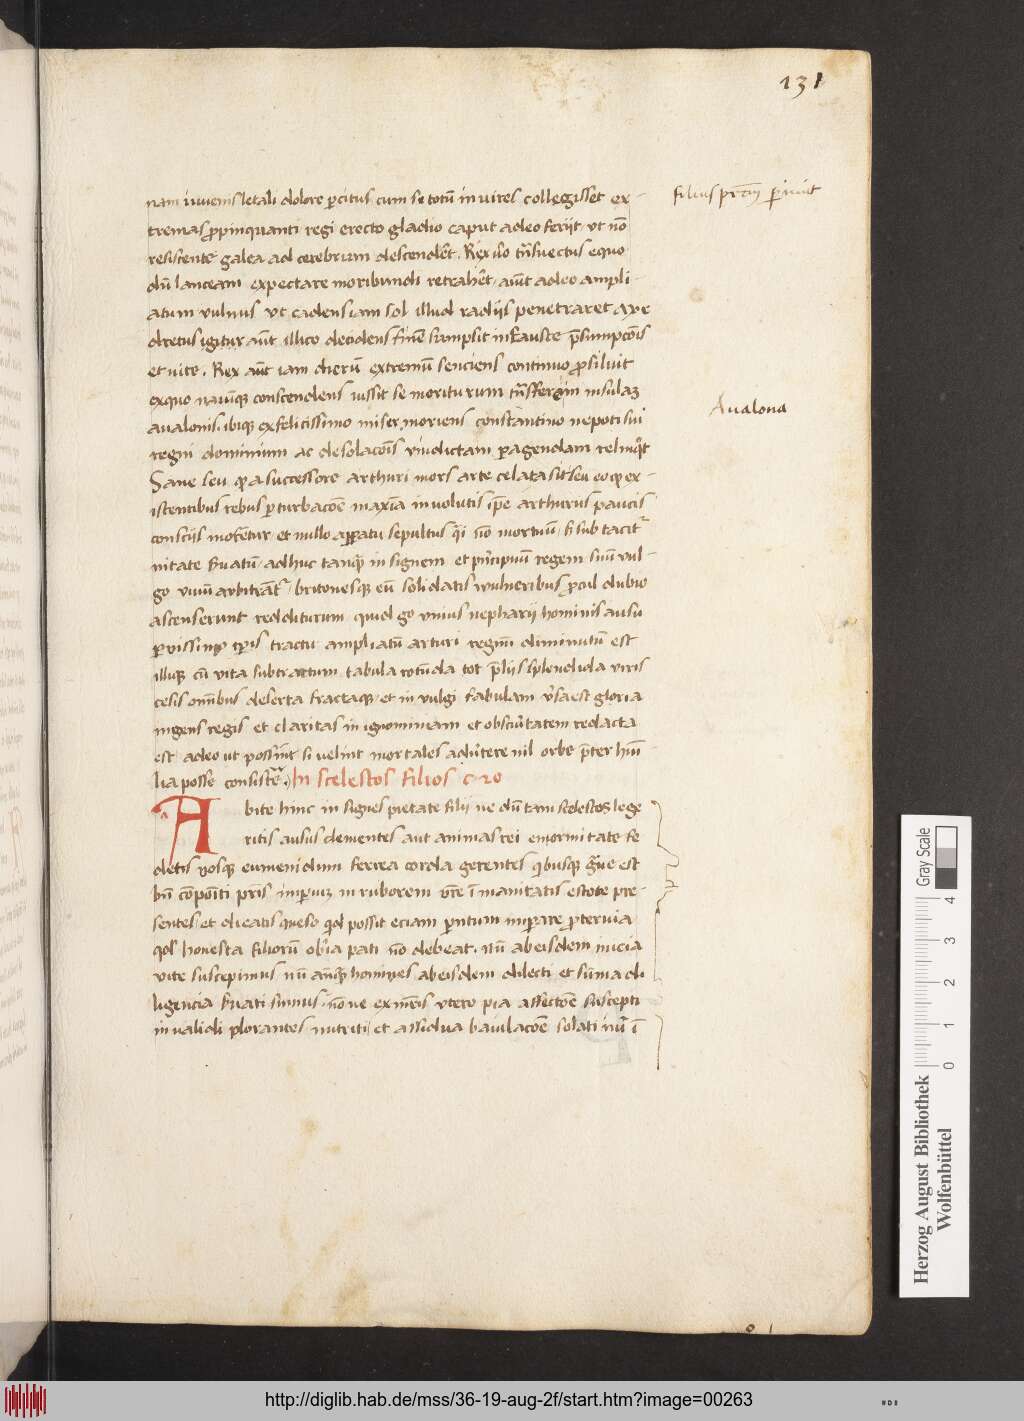 131
nam iuuenis letali dolore pcitus cum se totū in uires collegisset ex-
filius prē pimit
tremas ppinquanti regi erecto gladio caput adeo ferijt ut nō
resistente galea ad cerebrum descendēt. Rex ūo trāsuectus equo
dū lanceam expectare moribundi retrahēt, aūt adeo ampli-
atum uulnus ut cadens iam sol illud radijs penetraret
igitur aūt illico decidens finē sumpsit infauste psumpcōis
et uite. Rex aūt iam dierū extremū senciens continuo psiluit
exquo nauimq conscendens iussit se moriturum trāsfferri in insulaz
Aualona
aualonis. ibiq ex felicissimo miser moriens constantino nepoti sui
regni dominium ac desolacōis uindictam pagendam relinqt
Sane seu qa successore arthuri mors arte celata sit seu eo q ex-
istentibus rebus pturbacōe maxīa inuolutis ipe arthurus paucis
consciis et nullo appatu sepultus qi nō mortuū, s sub tacit
nitate suatū adhuc tanq insignem et pncipuū regem suū uul-
go uiuū arbitrāt, britonesq eū solidatis uulneribus pcul dubio
ascenserunt redditurum. quid go unius nepharij hominis ausu
puissimo tpis tractu ampliatū arturi regnū diminutū est
illuq cū uita subtractum tabula rotūda tot plijs splendida uiris
cesis omībus deserta fractaq et in uulgi fabulam uersa est gloria
ingens regis et claritas in ignominiam et obscuritatem redacta
est adeo ut possint si uelint mortales aduertere nil orbe pter hūi-
lia posse consistere. In scelestos filios c 20
Abite hinc insignes pietate filij ne dū tam scelestos lege
ritis ausus dementes aut animas rei enormitate fe
detis uosq eumenidum ferrea corda gerentes qbusq graue est
bn cōpoīti pris imperiuz in ruborem urē imanitatis estote pre-
sentes et diicatis queso qd possit eciam pntum impare pteruia
qd honesta filiorū obia pati nō debeat. nū ab eisdem inicia
uite suscepimus nū anq homines ab eisdem dilecti et sūma di
ligencia suati sumus. nōne exinis utero pia affectōe suscepti
inualidi plorantes nutriti et assidua baiulacōe solati nū ī
Herzog August Bibliothek
Wolfenbüttel
0 1 2 3 4
Gray Scale
http://diglib.hab.de/mss/36-19-aug-2f/start.htm?image=00263